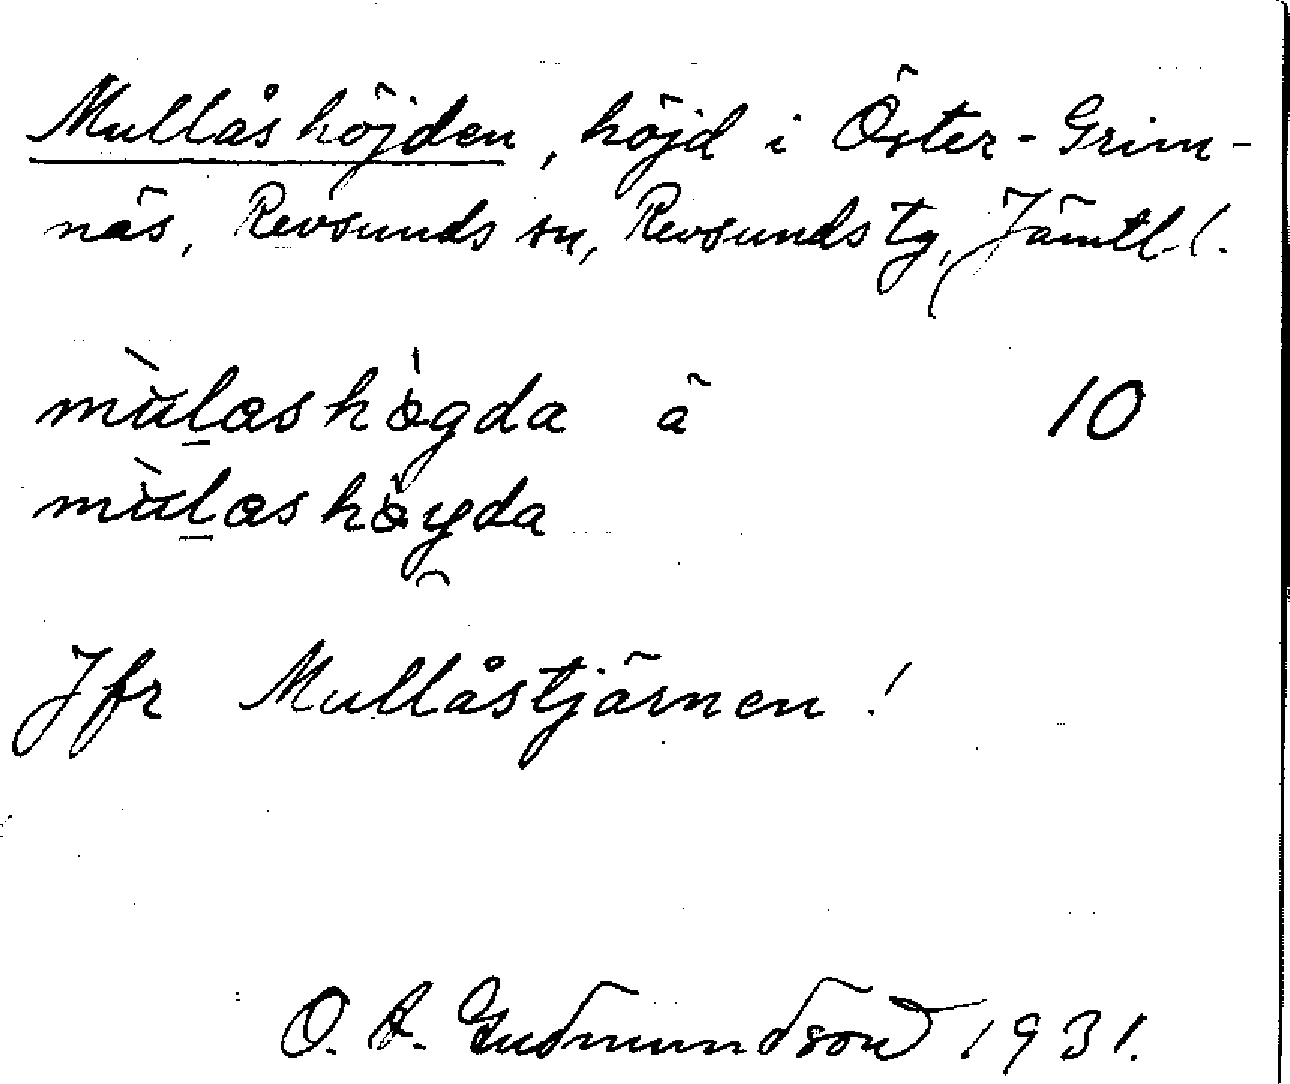 Mullåshöjden, höjd i Öster-Grim-
näs, Revsunds sn, Revsunds tg, Jämtl. l.
mùlashøgda ä 10
mùlashøyda
Jfr Mullåstjärnen!
O. A. Gudmundson 1931.